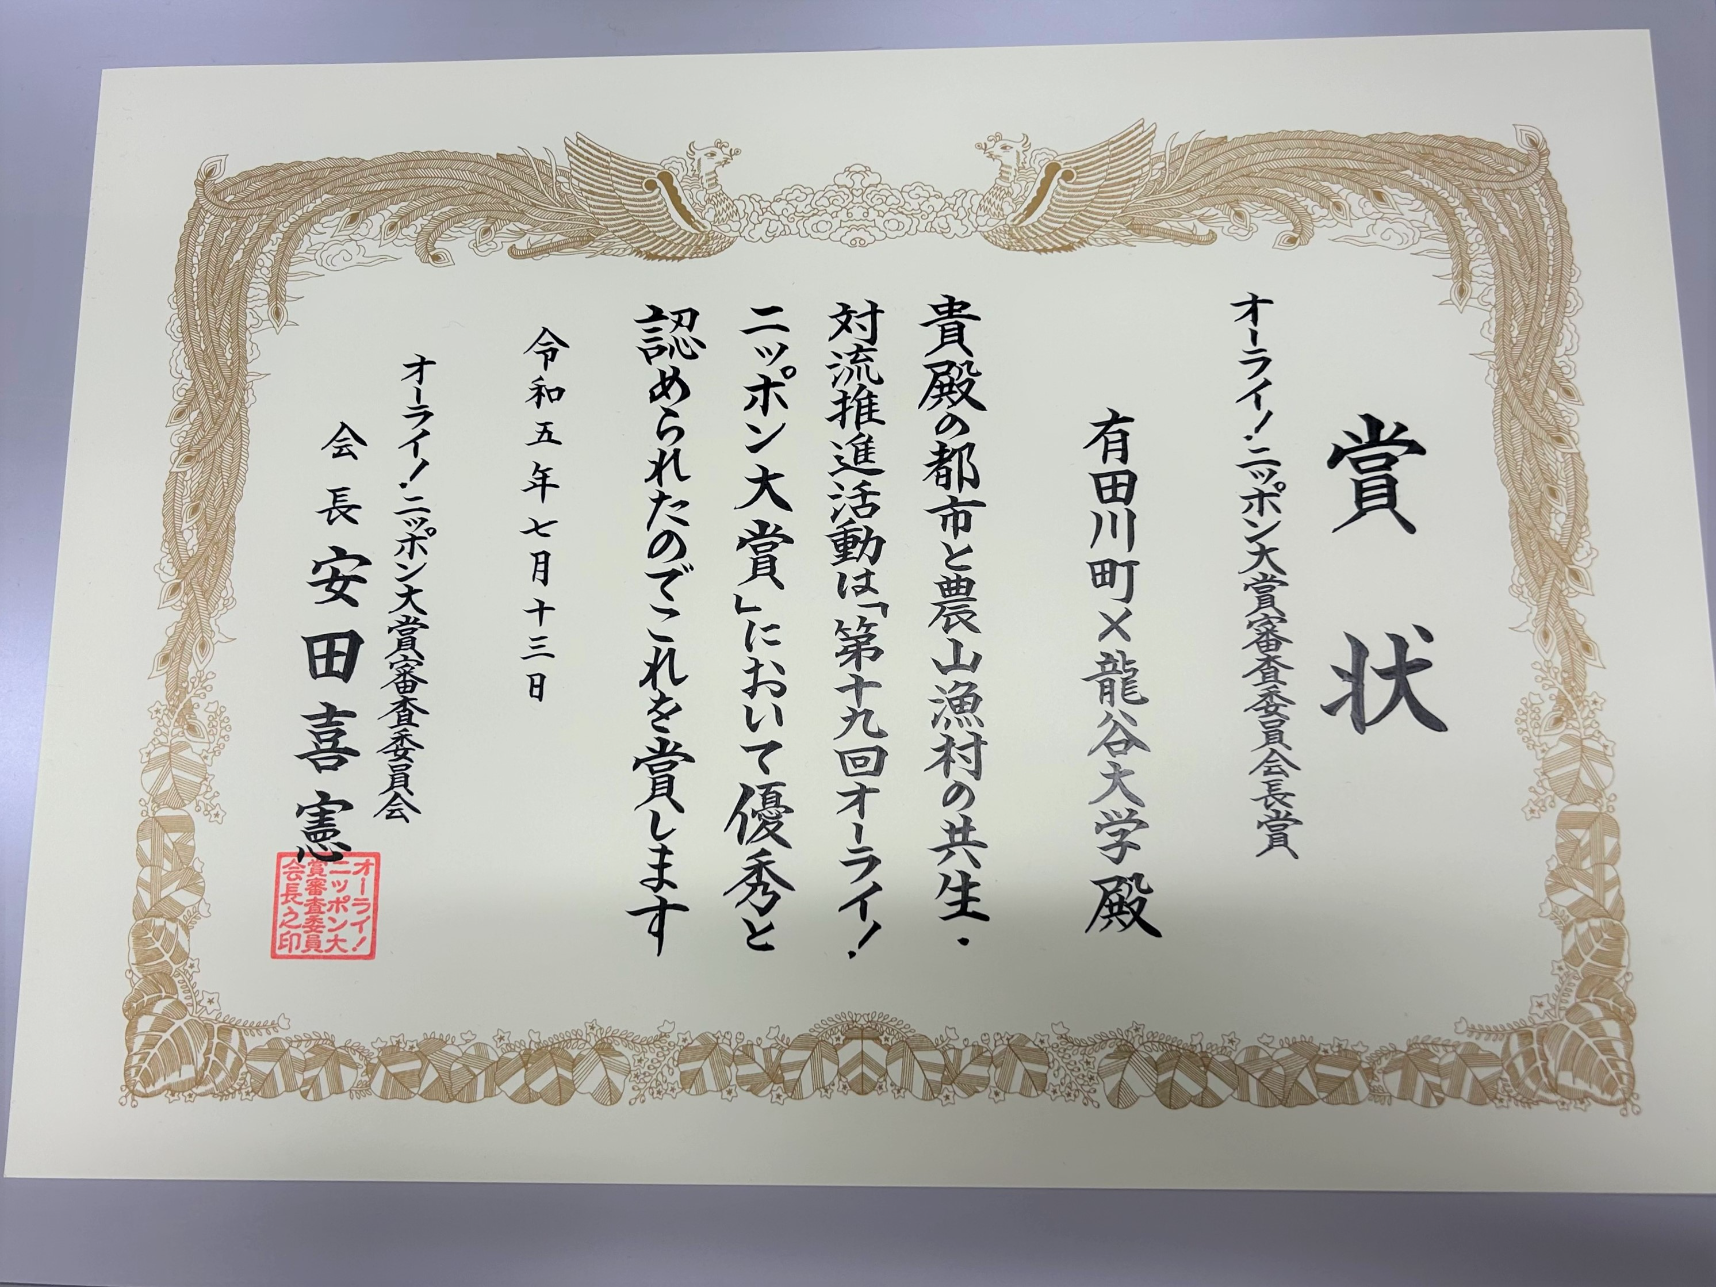 賞状
オーライ!ニッポン大賞審査委員会長賞
有田川町×龍谷大学殿
貴殿の都市と農山漁村の共生・
対流推進活動は「第十九回オーライ!
ニッポン大賞」において優秀と
認められたのでこれを賞します
令和五年七月十三日
オーライ!ニッポン大賞審査委員会
会長安田喜憲
オーライ!
ニッポン大
賞審査委員
会長之印